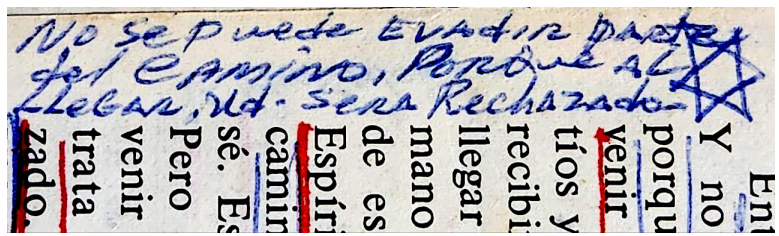 No Se Puede EVadiR PaRte
del CAMiNO, PorQue AL
LLeGAR, Ud. SeRA RechaZado
Ent
Y no
porqu
venir
tíos y
recibi
llegar
mano
de es
Espíri
camin
sé. Es
Pero
venir
trata
zado.